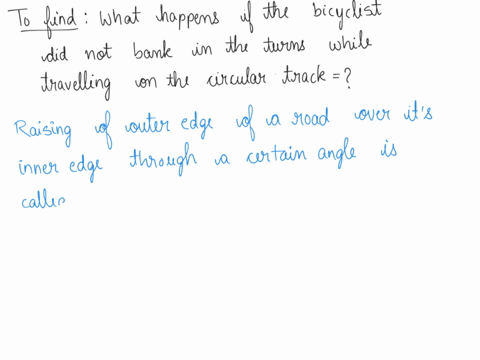 To find : What happens if the bicyclist
did not bank in the turns while
travelling on the circular track = ?
Raising of outer edge of a road over it's
inner edge through a certain angle is
calle